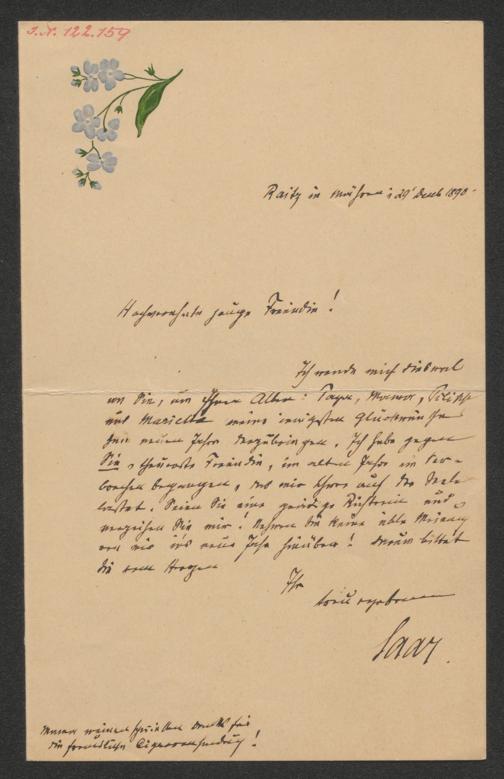 I.N. 122.159
Raitz in Mähren, 29t Decb 1890.
Hochverehrte junge Freundin!
Ich wende mich diesmal
an Sie, um Ihnen Allen: Papa, Mama, Felicie
und Marielle meine innigsten Glückwünsche
zum neuen Jahre darzubringen. Ich habe gegen
Sie, theuerste Freundin, im alten Jahr ein Ver-
brechen begangen, das mir schwer auf der Seele
lastet. Seien Sie eine gnädige Richterin und
verzeihen Sie mir! Nehmen Sie keine üble Meinung
von mir in's neue Jahr hinüber! Darum bittet
Sie vom Herzen
Ihr
treu ergebener
Saar.
Mama meinen Dank für
die freundliche Cigarrensendung!